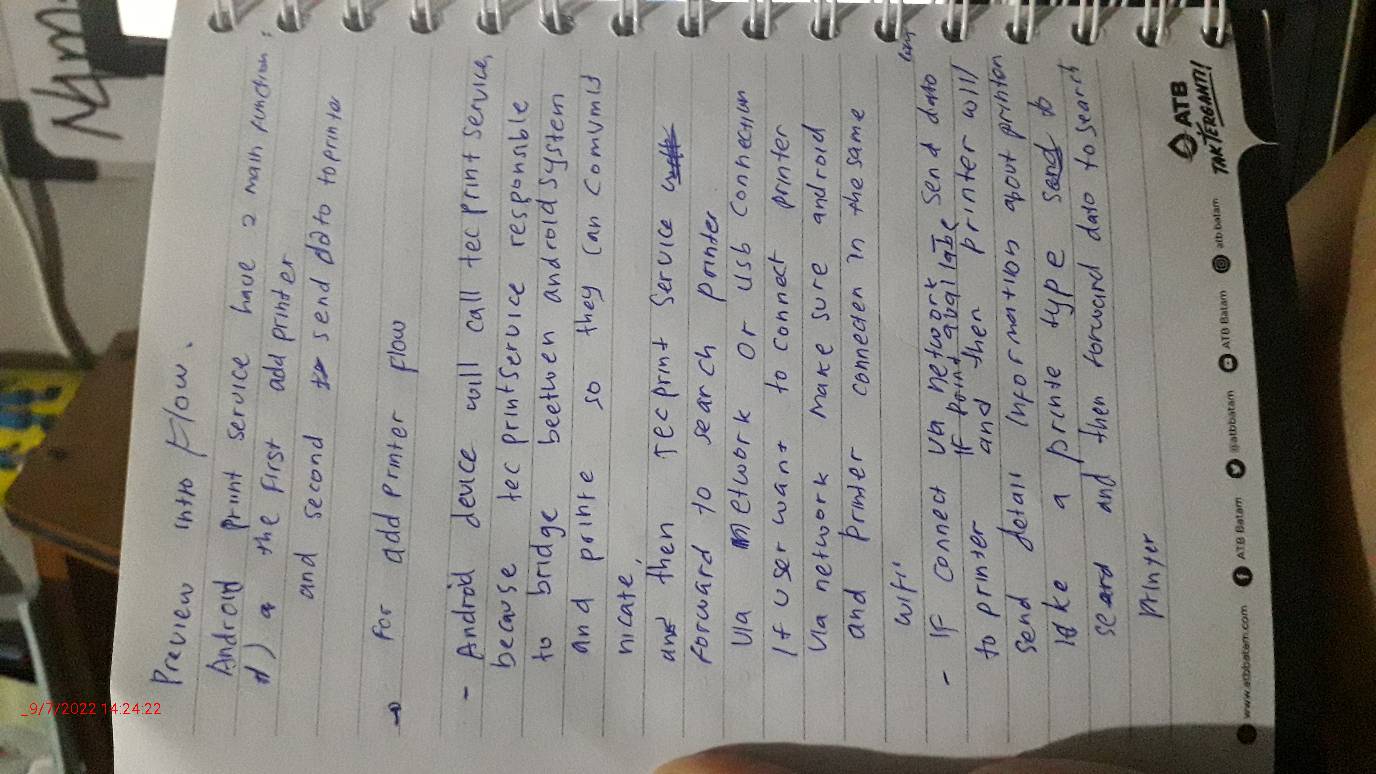 Preview intro Flow.
Android print service have 2 main function:
1) a the first add printer
and second send data to printer
→ For add printer flow
- Android device will call tecprint service,
because tecprintservice responsible
to bridge beetwen android system
and printe so they can comunid
nicate,
and then Tecprint Service
forward to search printer
via network or usb connection
If user want to connect printer
via network make sure android
and printer connecten in the same
wifi'
- If connect via network Send data
If print available
to printer and then printer will
send detail information about printer
like a printe type send to
seard and then forward data to search
printer
ATB
TAK TERGANTI!
www.atbbatam.com
ATB Batam
@atbbatam
ATB Batam
atb.batam
_9/7/2022 14:24:22